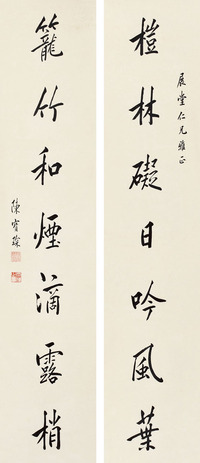 展堂仁兄雅正
榿林礙日吟風葉
籠竹和煙滴露梢
陳寶琛